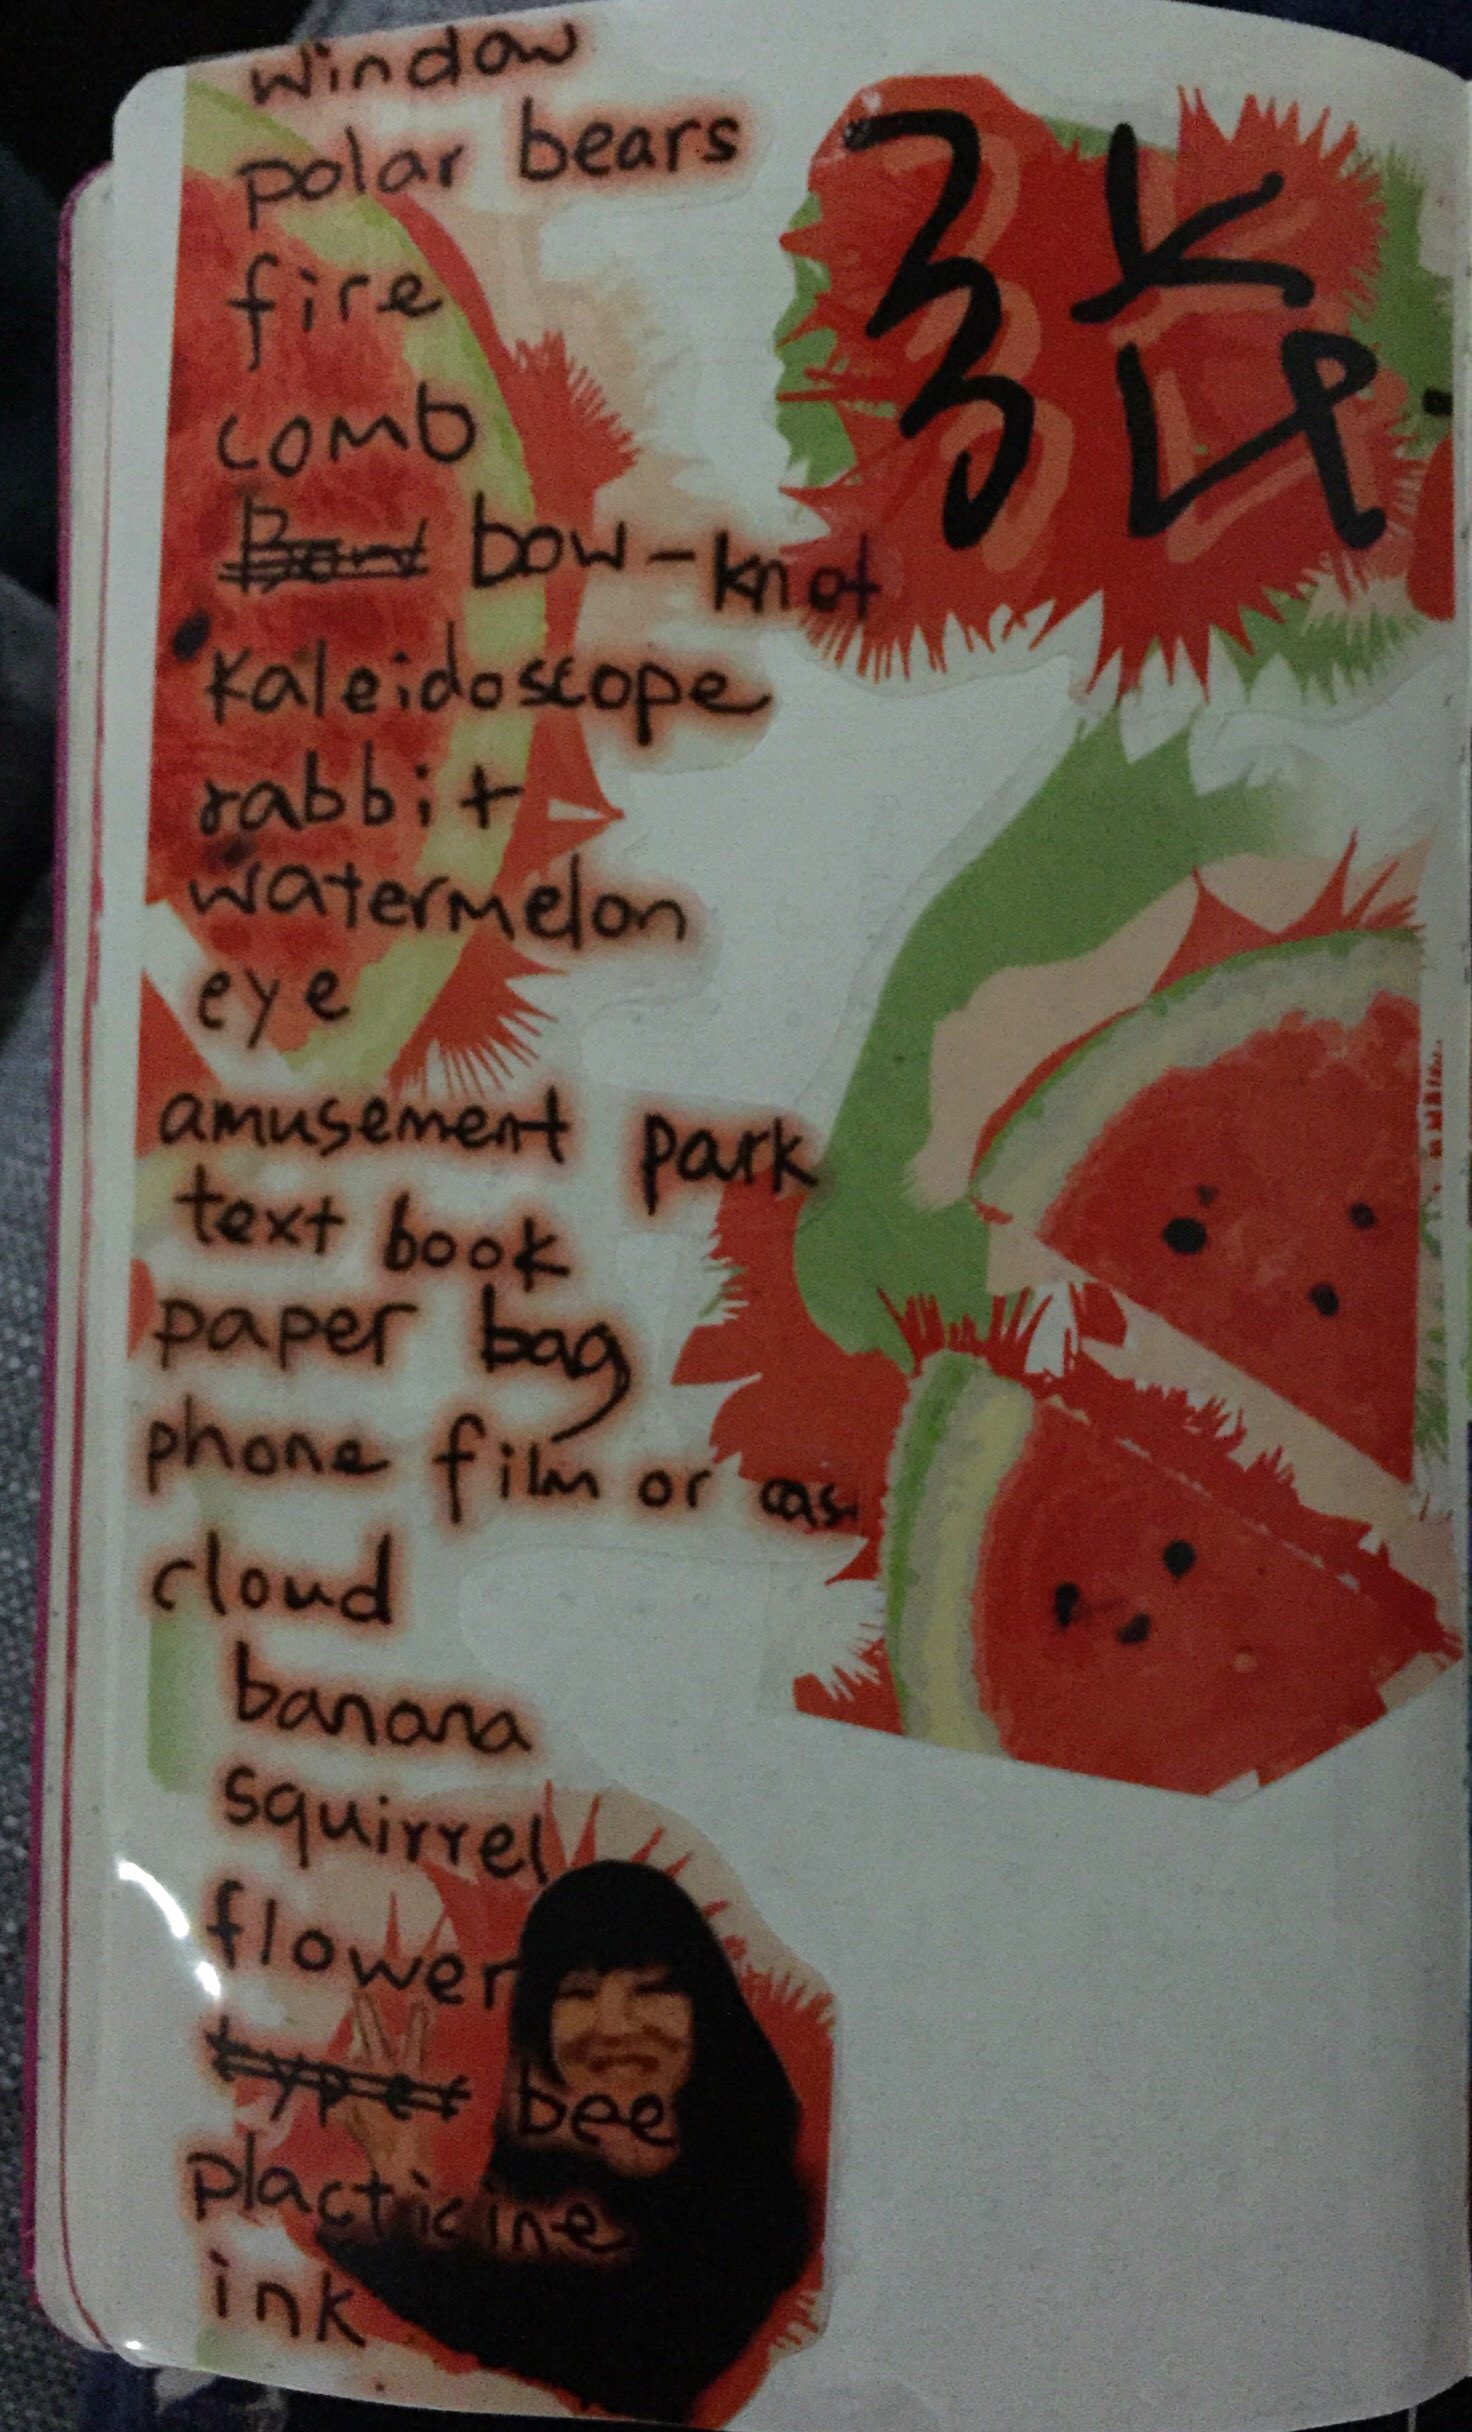 window
polar bears
fire
comb
bow-knot
kaleidoscope
rabbit
watermelon
eye
amusement park
text book
paper bag
phone film or cas
cloud
banana
squirrel
flower
typer bee
placticine
ink